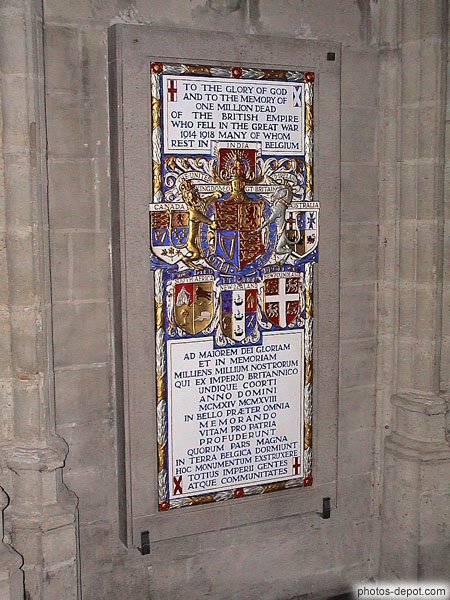 TO THE GLORY OF GOD
AND TO THE MEMORY OF
ONE MILLION DEAD
OF THE BRITISH EMPIRE
WHO FELL IN THE GREAT WAR
1914 1918 MANY OF WHOM
REST IN BELGIUM
INDIA
UNITED
KINGDOM OF GT BRITAIN
CANADA
AUSTRALIA
SOUTH AFRICA
NEW ZEALAND
NEWFOUNDLAND
AD MAIOREM DEI GLORIAM
ET IN MEMORIAM
MILLIENS MILLIUM NOSTRORUM
QUI EX IMPERIO BRITANNICO
UNDIQUE COORTI
ANNO DOMINI
MCMXIV MCMXVIII
IN BELLO PRÆTER OMNIA
MEMORANDO
VITAM PRO PATRIA
PROFUDERUNT
QUORUM PARS MAGNA
IN TERRA BELGICA DORMIUNT
HOC MONUMENTUM EXSTRUXERE
TOTIUS IMPERII GENTES
ATQUE COMMUNITATES
photos-depot.com